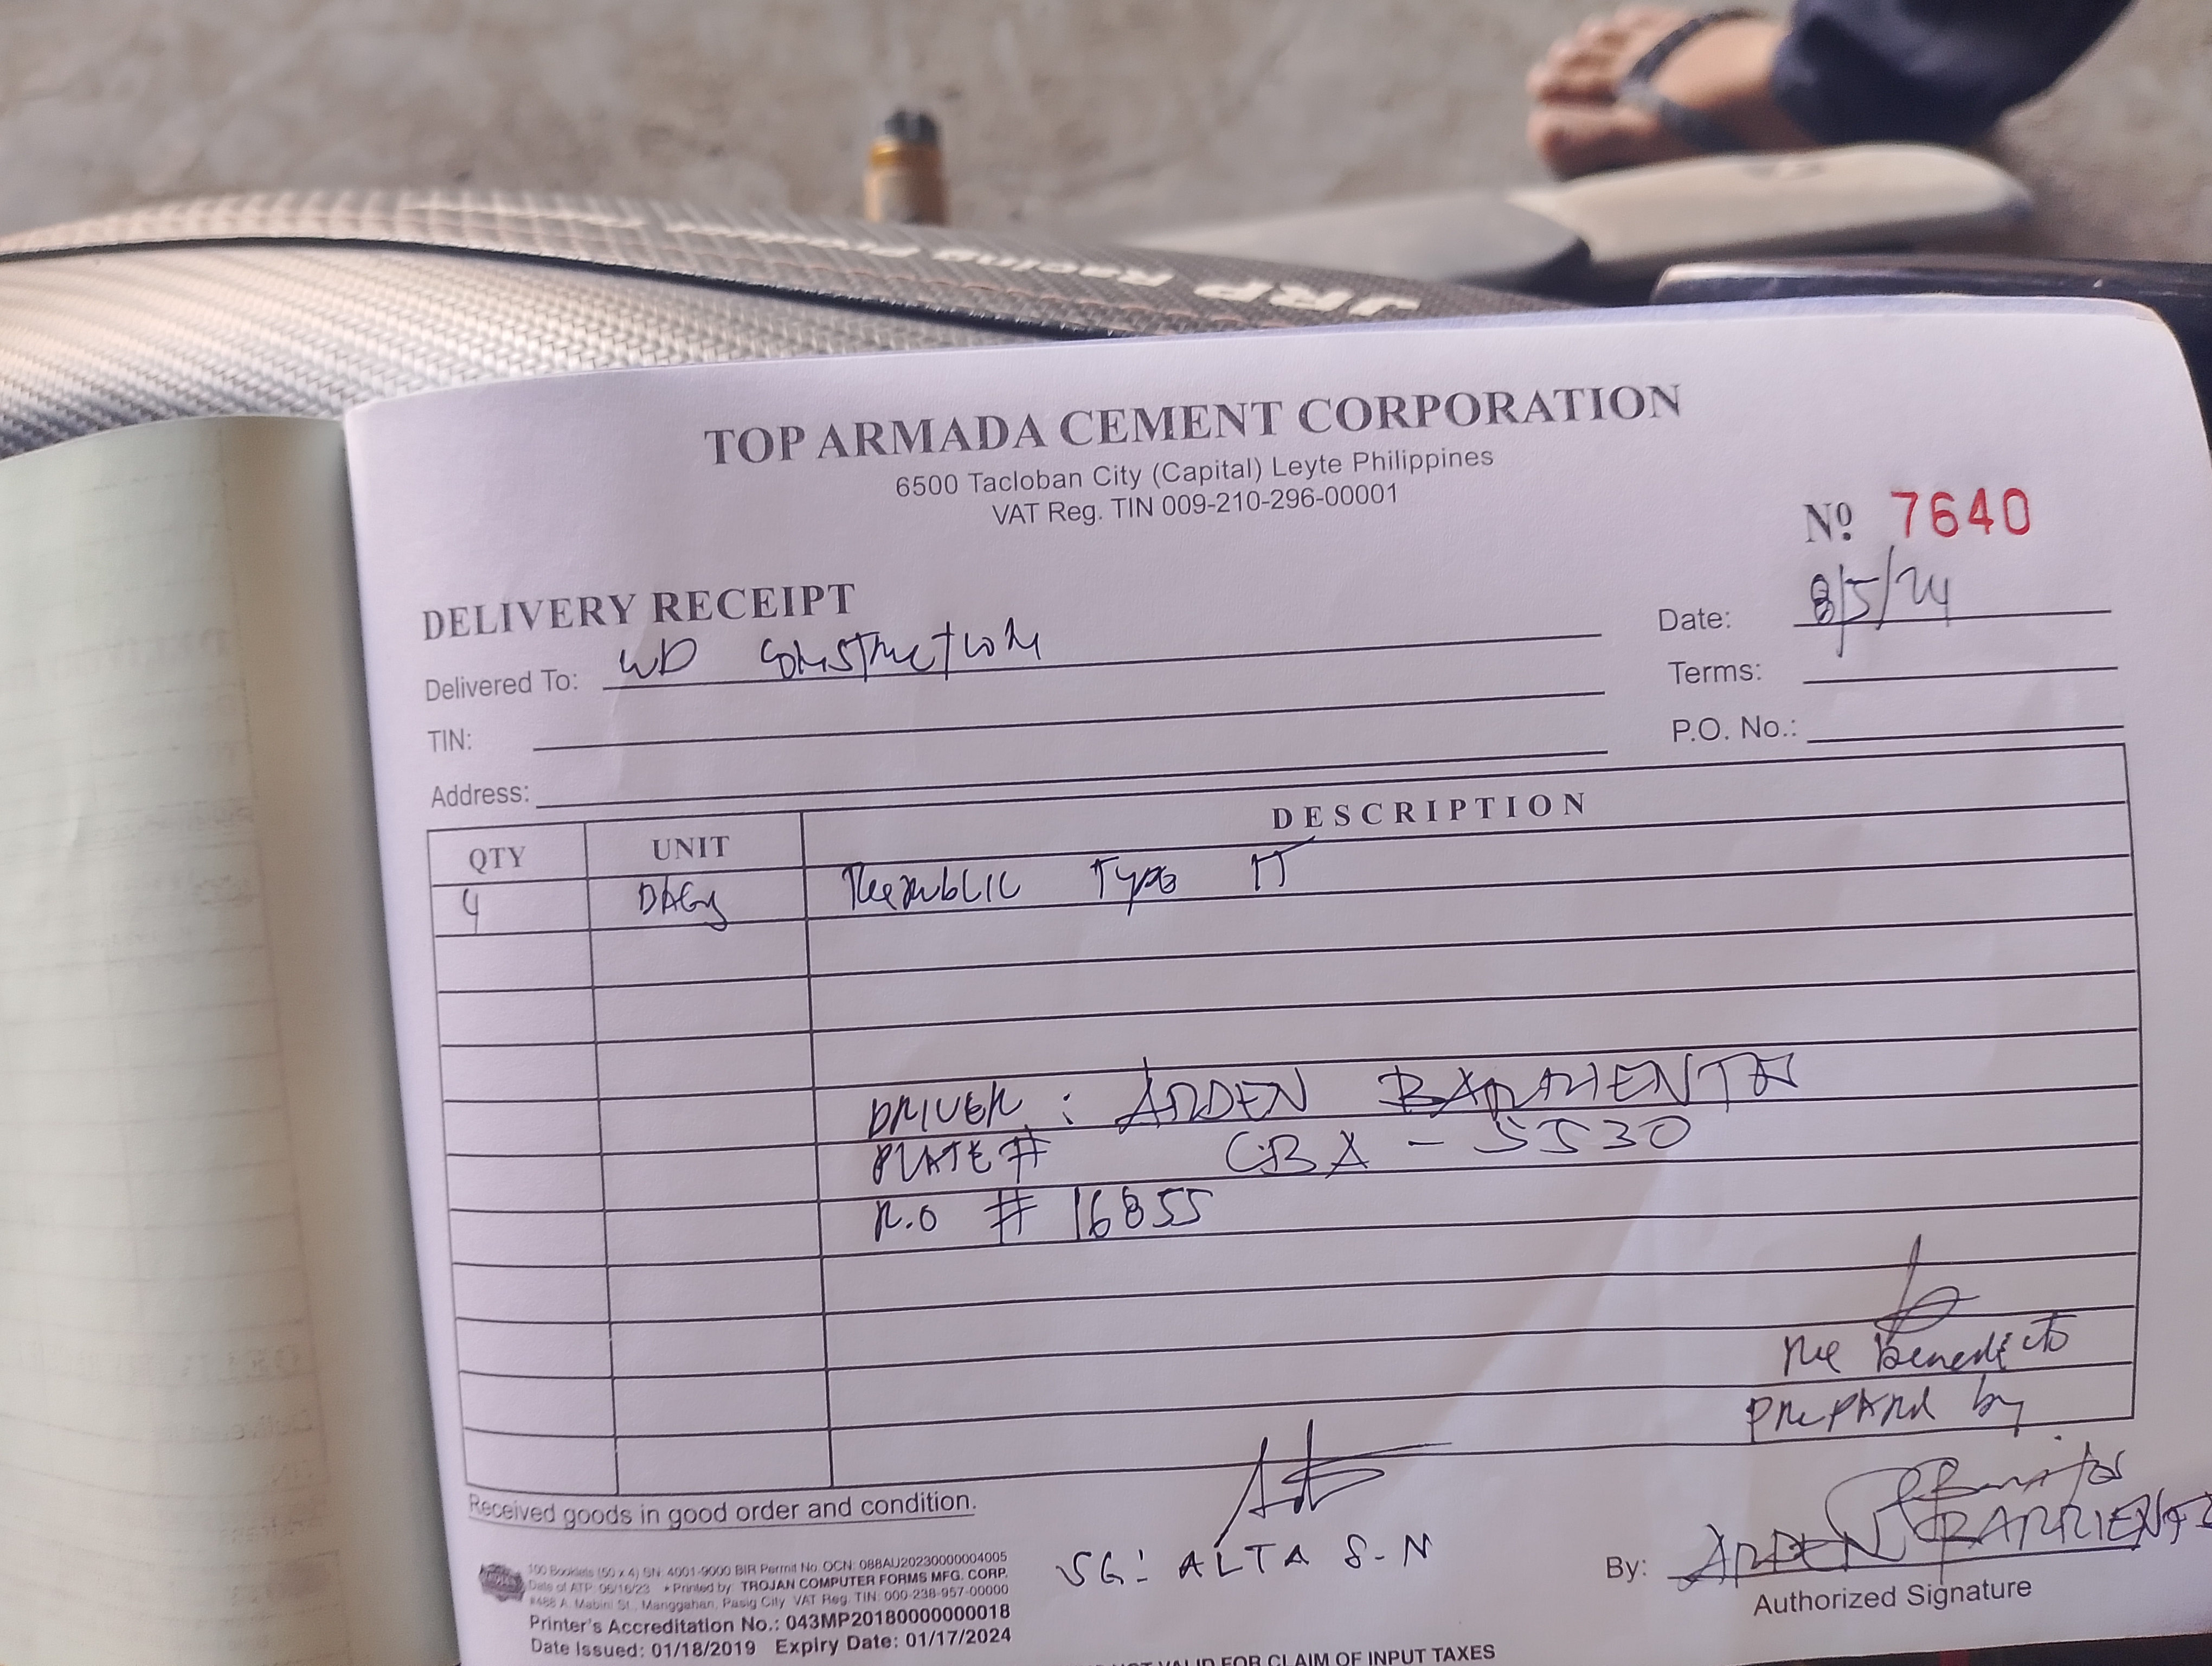 JRP Racing
TOP ARMADA CEMENT CORPORATION
6500 Tacloban City (Capital) Leyte Philippines
VAT Reg. TIN 009-210-296-00001
Nº 7640
DELIVERY RECEIPT
Date: 8/5/24
Delivered To: WD Construction
Terms:
TIN:
P.O. No.:
Address:
QTY UNIT DESCRIPTION
4 BAGs Republic Type IT
DRIVER : ARDEN BARRIENTOS
PLATE # CBA - 5530
R.O # 16855
Benedicto
PREPARED by
Received goods in good order and condition.
SG: ALTA S.N
By: ARDEN BARRIENTOS
Authorized Signature
100 Booklets (50 x 4) SN: 4001-9000 BIR Permit No. OCN: 088AU20230000004005
Date of ATP: 06/16/23 • Printed by TROJAN COMPUTER FORMS MFG. CORP.
#488 A. Mabini St., Manggahan, Pasig City VAT Reg. TIN: 000-238-957-00000
Printer's Accreditation No.: 043MP20180000000018
Date Issued: 01/18/2019 Expiry Date: 01/17/2024
VALID FOR CLAIM OF INPUT TAXES